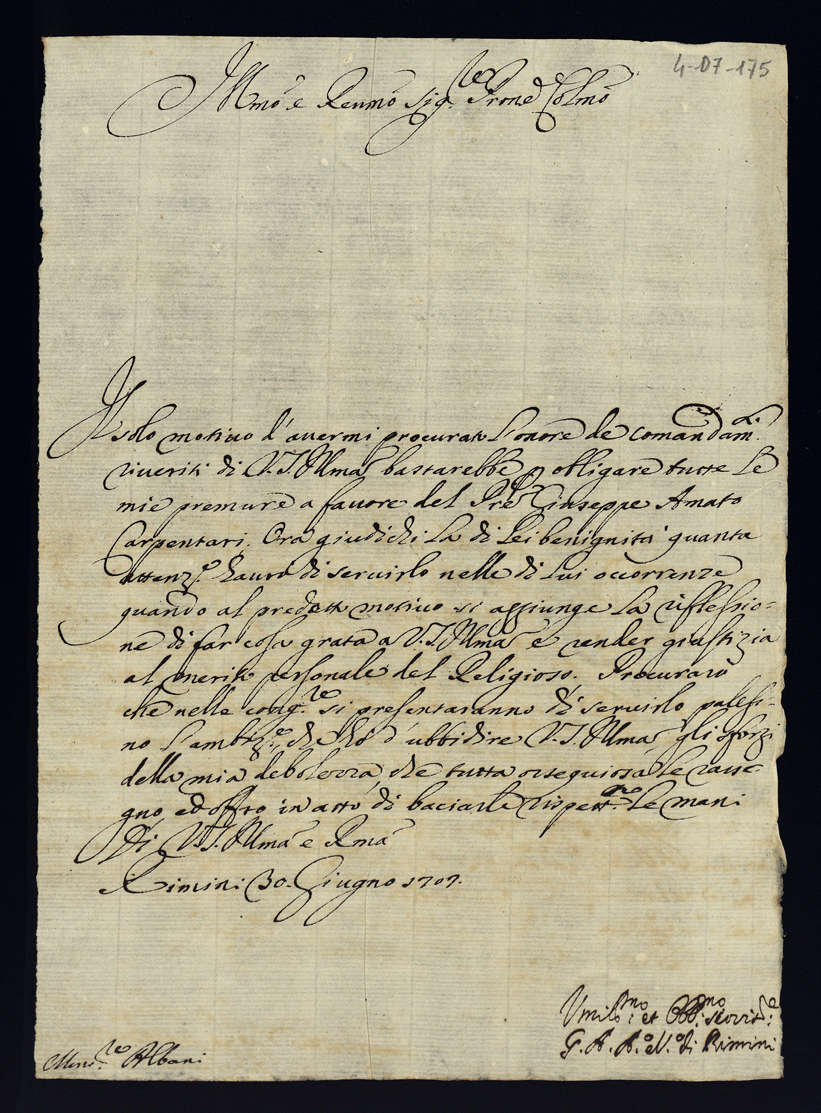 4-07-175
Illmo e Reumo Sig.re Prone Colmo
Il solo motivo d'auermi procurato l'onore de comandam.ti
riueriti di V. S. Illma bastarebbe p obligare tutte le
mie premure a fauore del Pre Giuseppe Amato
Carpentari. Ora giudichi la di lei benignità quanta
attenz.e hauro di seruirlo nelle di lui occorrenze
quando al predetto motivo si aggiunge la riflessio-
ne di far cosa grata a V. S. Illma e render giustizia
al merito personale del Religioso. Procuraro
che nelle cong.re si presentaranno di seruirlo palesi-
no l'ambiz.e che ho d'ubbidire V. S. Illma gli sforzi
della mia debolezza, che tutta ossequiosa le rasse-
gno ed offro in atto di baciarle rispett.mo le mani
Di V. S. Illma e Rma
Rimini 30. Giugno 1707.
Umilo.mo et Obb.mo seruit.e
G. A. A.o V.o di Rimini
Mons.re Albani